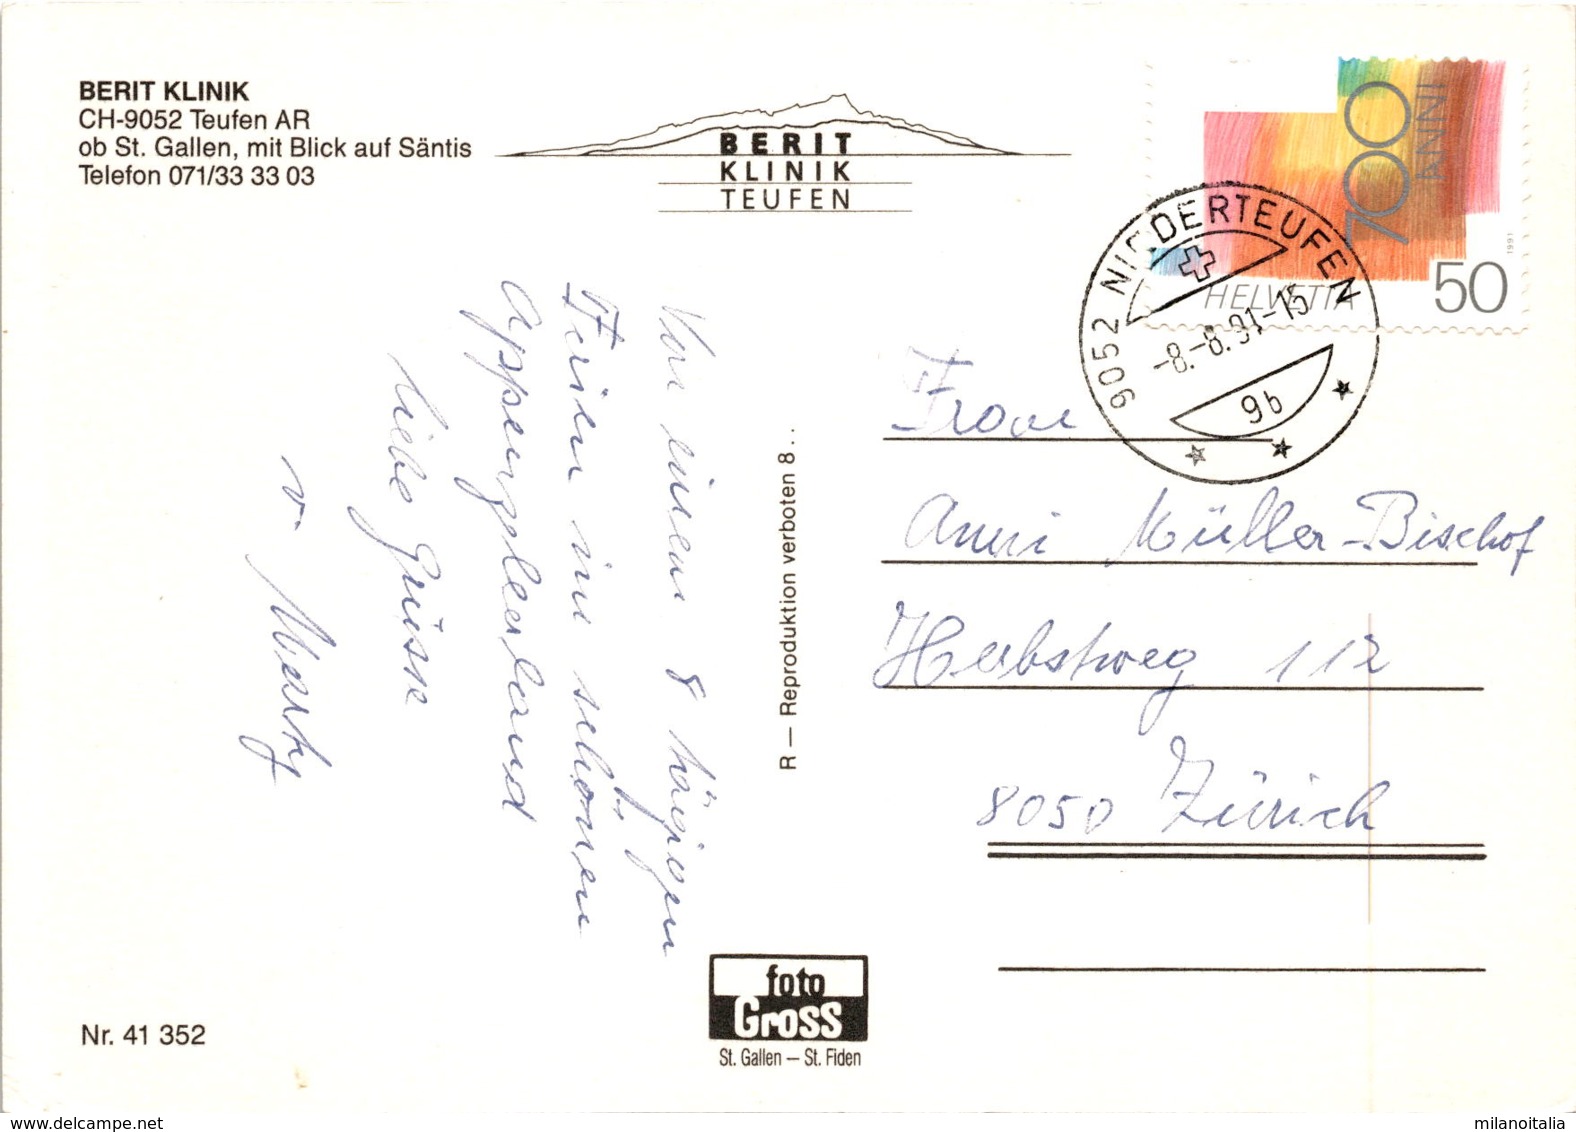 BERIT KLINIK
CH-9052 Teufen AR
ob St. Gallen, mit Blick auf Säntis
Telefon 071/33 33 03
BERIT
KLINIK
TEUFEN
700
ANNI
1991
HELVETIA
50
9052 NIEDERTEUFEN
-8.-8.91-15
9b
Von einem 8 tägigen
Ferien im schönen
Appenzellerland
liebe Grüsse
v. Marty
R — Reproduktion verboten 8...
Frau
Anni Müller-Bischof
Herbstweg 112
8050 Zürich
foto
Gross
St. Gallen – St. Fiden
Nr. 41 352
www.delcampe.net
milanoitalia